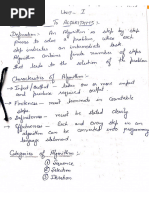 Unit - I
To ALGORITHMS:-
Definition:- An Algorithm is step by step
process to solve a problem, where each
step indicates an intermediate task.
Algorithm contains finite number of steps
that leads to the solution of the problem.
Characteristics of Algorithm:-
Input/Output -
and produce required output
Finiteness - must terminate in countable
steps
Definiteness - must be stated clearly
Effectiveness - Each and every step in an
algorithm can be converted into programming
language statement.
Categories of Algorithm:-
① Sequence
② Selection
③ Iteration